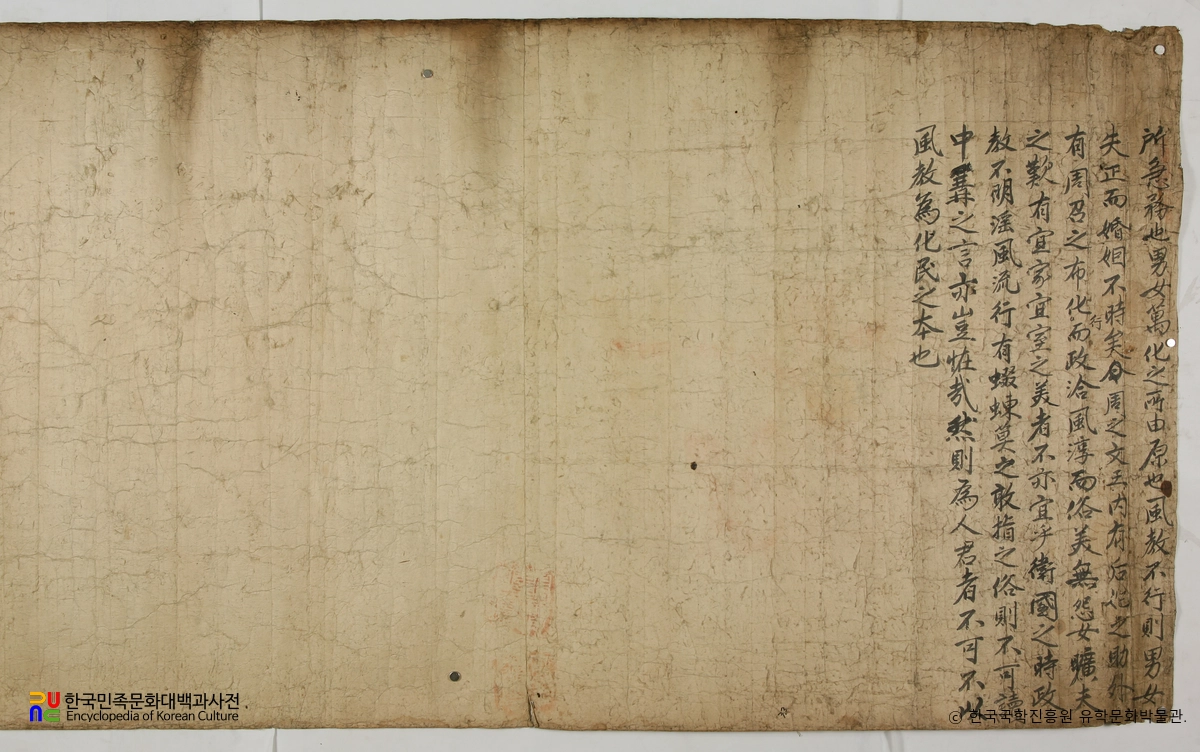 所急務也男女萬化之所由原也風敎不行則男女
失正而婚姻不時矣今周之文王內有后妃之助外
有周召之布化而政洽風淳而俗美無怨女曠夫
行
之歎有宜家宜室之美者不亦宜乎衛國之時政
敎不明淫風流行有蝃蝀莫之敢指之俗則不可讀
中冓之言亦豈恠哉然則爲人君者不可不以
風敎爲化民之本也
한국민족문화대백과사전
Encyclopedia of Korean Culture
ⓒ 한국국학진흥원 유학문화박물관.